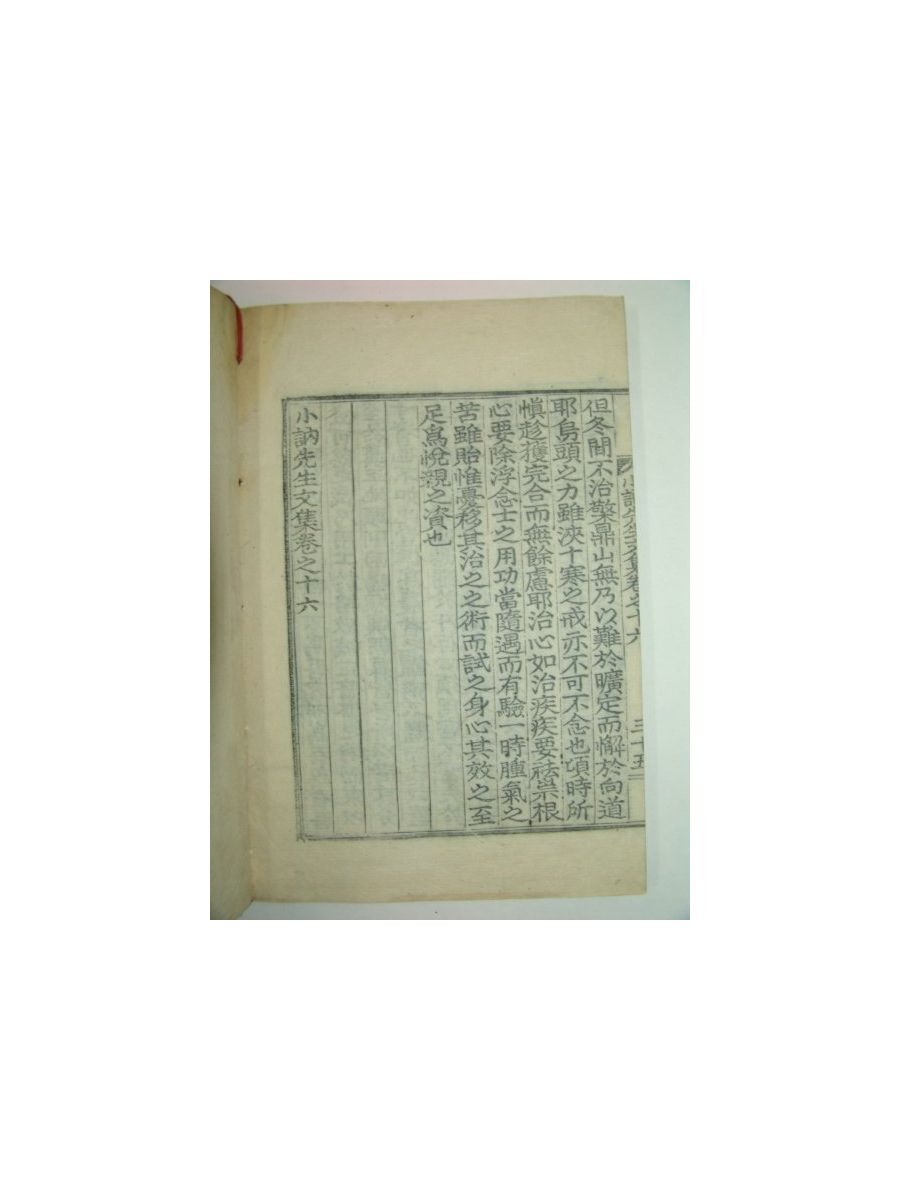 小訥先生文集卷之十六 三十五
但冬間不治檠鼎山無乃以難於曠定而懈於向道
耶烏頭之力雖浹十寒之戒亦不可不念也頃時所
愼趁獲完合而無餘慮耶治心如治疾疾要祛祟根
心要除浮念士之用功當隨遇而有驗一時腫氣之
苦雖貽惟憂移其治之之術而試之身心其效之至
足爲悅親之資也
小訥先生文集卷之十六